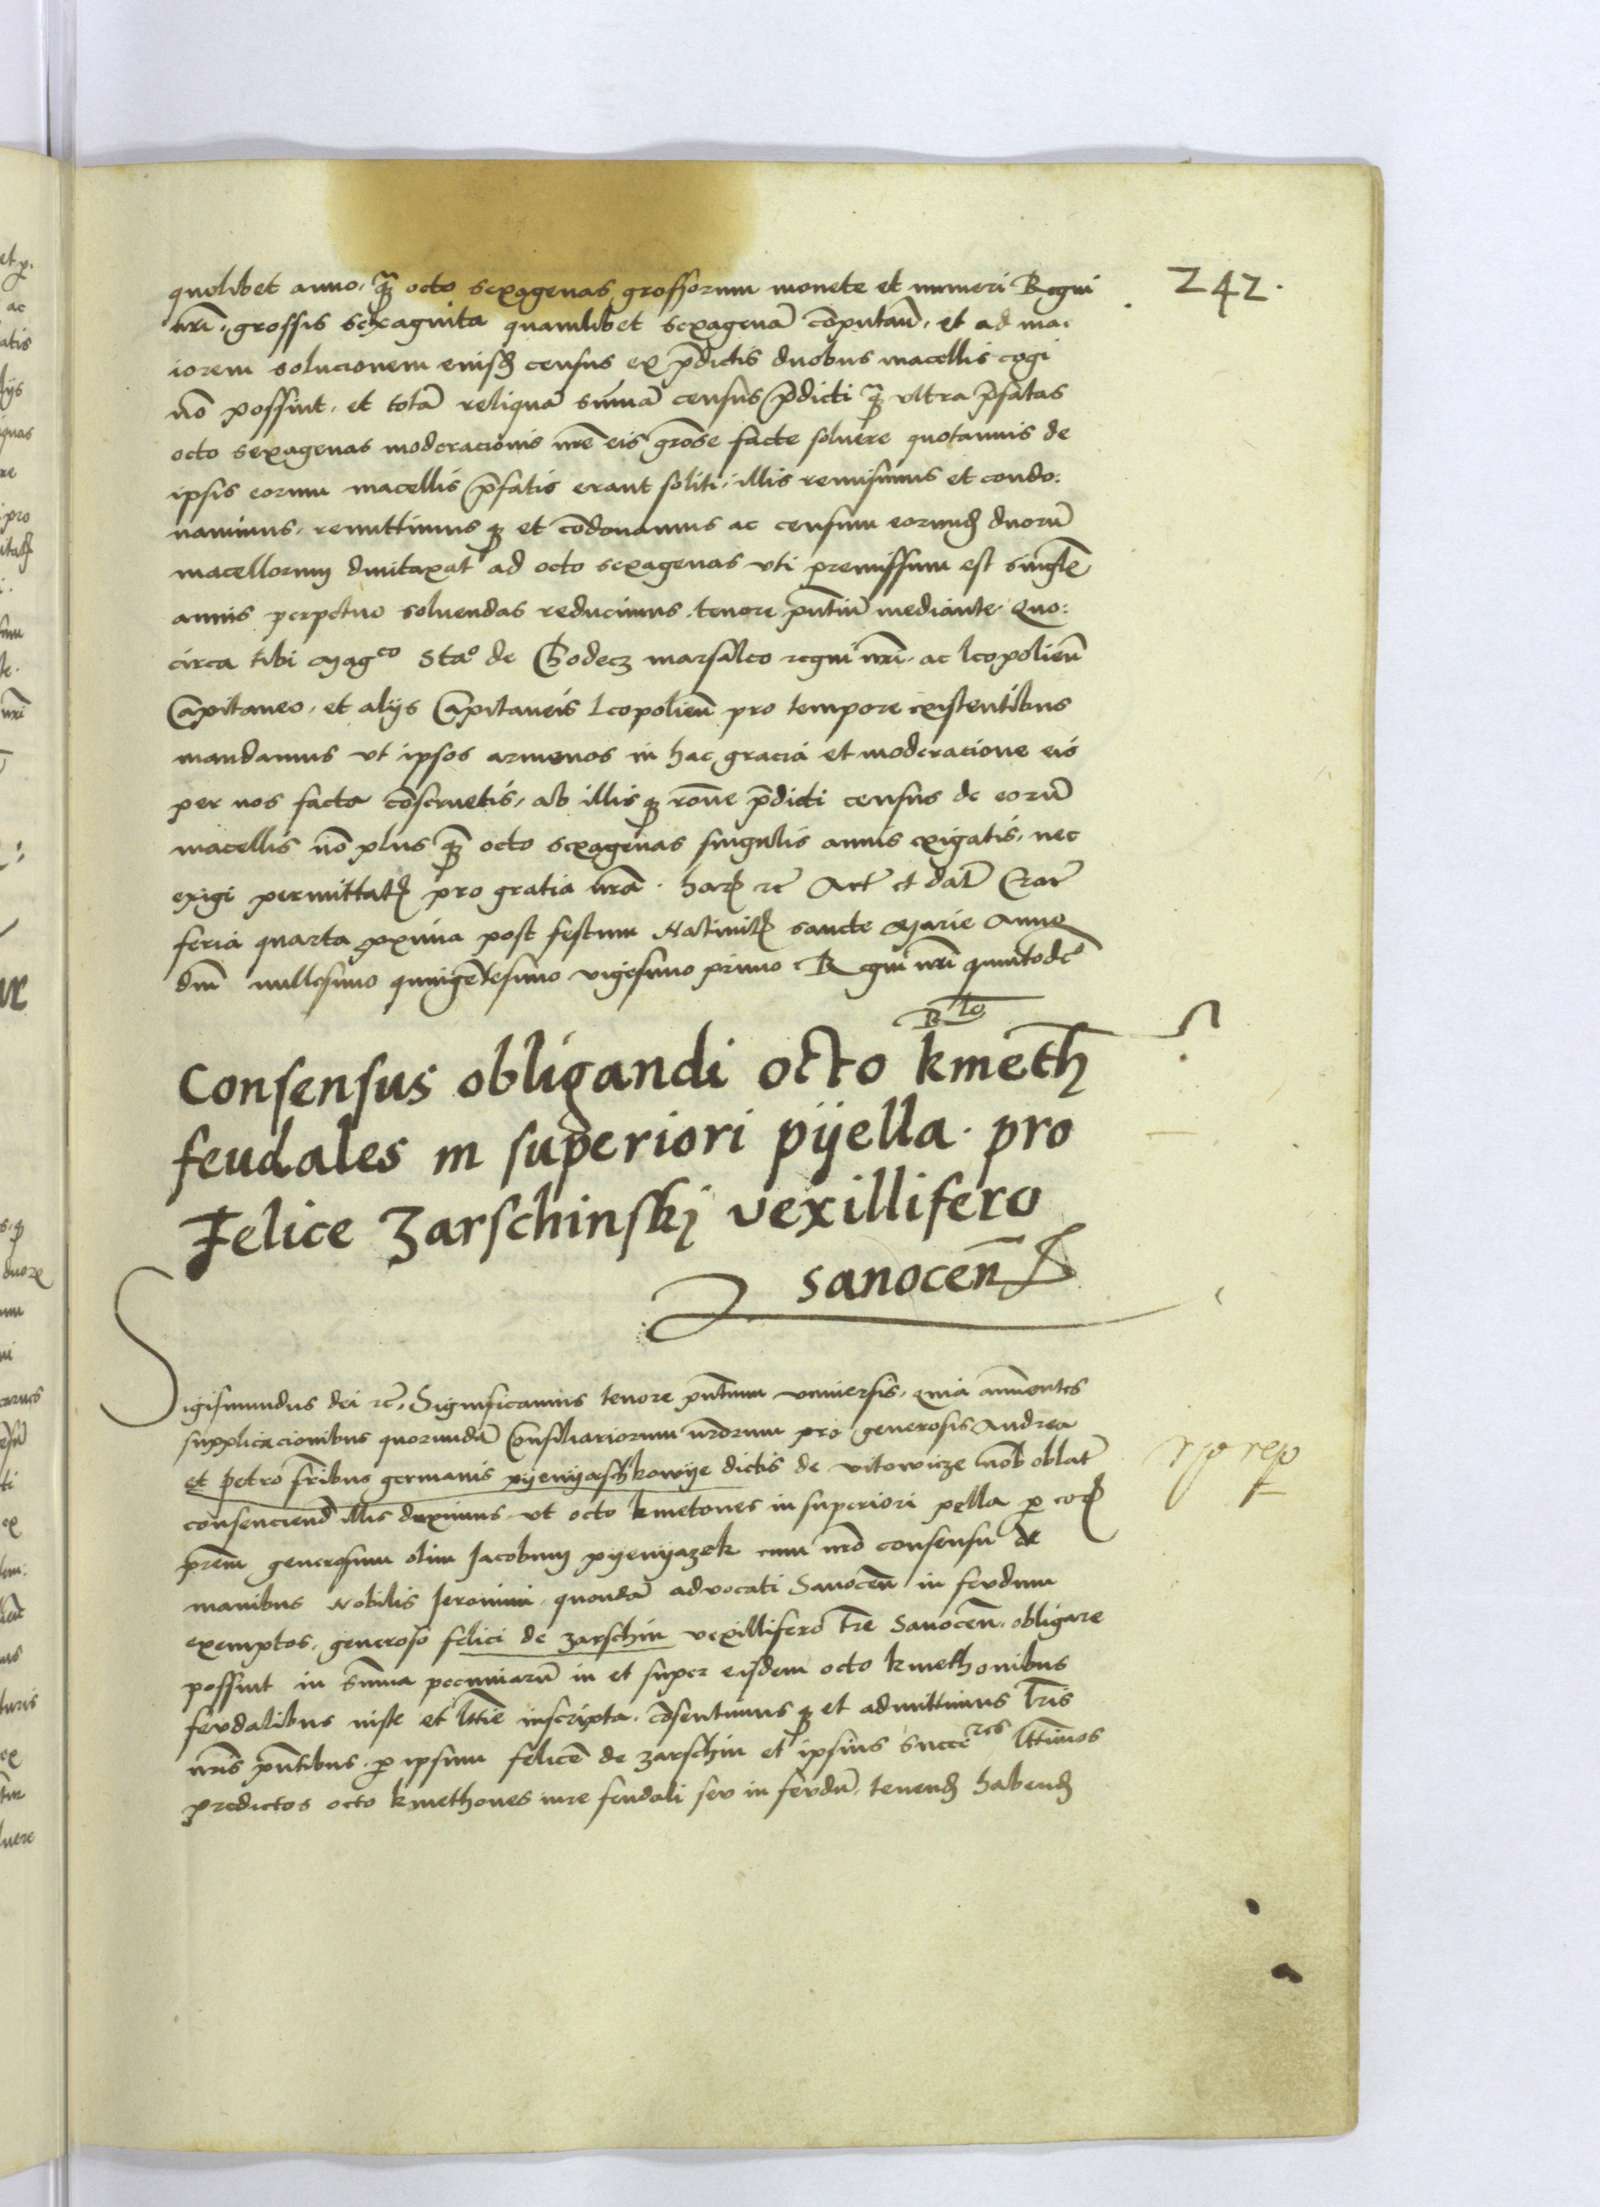 242.
quolibet anno, q̃ꝫ octo sexagenas grossorum monete et numeri Regni
nr̃i, grossis sexaginta quamlibet sexagenã cõputañ, et ad ma-
iorem solucionem eiusdꝫ census ex p̃dictis duobus macellis cogi
nõ possint, et totã reliquã sum̃ã census p̃dicti q̃ꝫ ultra p̃fatas
octo sexagenas moderacionis nr̃e eis gr̃ose facte soluere quotannis de
ipsis eorum macellis p̃fatis erant soliti, illis remisimus et condo:
nauimus, remittimus qꝫ et cõdonamus ac censum eorundꝫ duorũ
macellorum dumtaxat ad octo sexagenas vti premissum est singl̃is
annis perpetuo soluendas reducimus tenore pñtiũ mediante. Quo:
circa tibi Mag^co Sta^o de Chodecz marsalco regni nr̃i, ac leopolieñ
Capitaneo, et alijs Capitaneis Leopolieñ pro tempore existentibus
mandamus vt ipsos armenos in hac gracia et moderacione eis
per nos facta cõseruetis, ab illis qꝫ rõne p̃dicti census de eorũ
macellis nõ plus q̃ꝫ octo sexagenas singulis annis exigatis, nec
exigi permittatꝭ pro gratia nr̃a. harꝫ rc̃ Act̃ et dat̃ Crac̃
feria quarta proxima post festum Natiuitꝭ sancte Marie Anno
dñi millesimo quingẽtesimo vigesimo primo Regni nr̃i quintodec̃o
R^to
Consensus obligandi octo kmeth̃
feudales in superiori pijella. pro
Felice Zarschinskj vexillifero
sanoceñ
Sigismundus dei rc̃, Significamus tenore pñtium vniuersis, Quia annuentes
supplicacionibus quorundã Consiliariorum nr̃orum pro generosis Andrea
et Petro fr̃ibus germanis pyenyaschkowye dictis de vitowicze nob̃ oblat̃
consenciend̃ illis duximus vt octo kmetones in superiori pella p eorꝫ
pr̃em generosum olim Jacobum pyenyazek cum nr̃o consensu de
manibus Nobilis Jeronimi quondã aduocati Sanoceñ in feudum
exemptos, generoso felici de zarschin vexillifero tr̃e Sanoceñ, obligare
possint in Sum̃a pecuniarũ in et super eisdem octo kmethonibus
feudalibus iuste et l̃tt̃ie inscripta. cõsentimus qꝫ et admittimus l̃ris
nr̃is pñtibus. p ipsum felicẽ de zarschin et ipsius Succe^res l̃tt̃imos
predictos octo kmethones iure feudali seu in feudũ, tenendꝫ habendꝫ